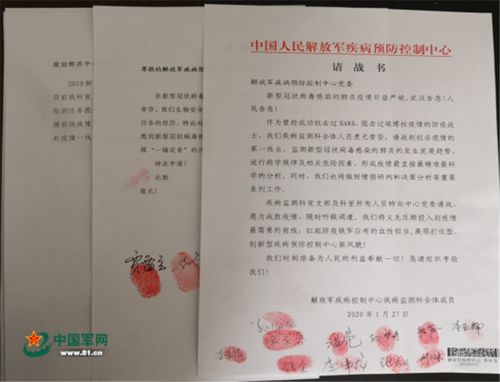 政治部并中心
2019新
目前我科室
检测任务团
援前线疫情
赴疫情一线
尊敬的解放军疾病预
在新型冠状病
旁贷。我们生物安全
任务的经历，特此
愿到新型冠状病毒
探"一锤定音"的决
特此申请！
此致
敬礼！
中国人民解放军疾病预防控制中心
请战书
解放军疾病预防控制中心党委
新型冠状病毒感染的肺炎疫情日益严峻，武汉告急！人
民告急！
作为曾成功抗击过SARS、阻击过埃博拉疫情的防疫战
士，我们疾病监测科全体人员责无旁贷，请战到抗击疫情的
第一线去，监测新型冠状病毒感染的肺炎的发生发展趋势，
流行病学规律及相关危险因素，形成疫情最直接最精准最科
学的分析，同时，我们也将做好情报研判和决策分析等重要
系列工作。
疾病监测科党支部及科室所有人员特此向中心党委请战，
愿为战胜疫情，随时听候调遣。我们将义无反顾投入到疫情
最需要的前线，扛起防疫铁军应有的血性担当，展现打仗型、
创新型疾病预防控制中心新风貌！
我们时刻准备为人民的利益奉献一切！恳请组织考验
我们！
解放军疾病预防控制中心疾病监测科全体成员
2020年1月27日
中国军网
www.81.cn